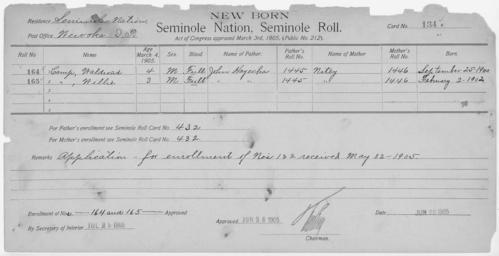 NEW BORN
Residence Seminole Nation
Card No. 134
Seminole Nation, Seminole Roll.
Post Office Wewoka I.T.
Act of Congress approved March 3rd, 1905, (Public No. 212).
Roll No Name Age March 4, 1905. Sex. Blood Name of Father. Father's Roll No. Name of Mother. Mother's Roll No. Born.
164 Camp, 4 M Full John 1445 1446 September 25
165 " , Willie 3 M Full " " 1445 " 1446 February 2
For Father's enrollment see Seminole Roll Card No. 432
For Mother's enrollment see Seminole Roll Card No. 432
Remarks Application for enrollment of Nos 1 & 2 received May 22 - 1905
Enrollment of Nos. 164 and 165 Approved
By Secretary of Interior
Approved 1905
Chairman.
Date JUN 1905